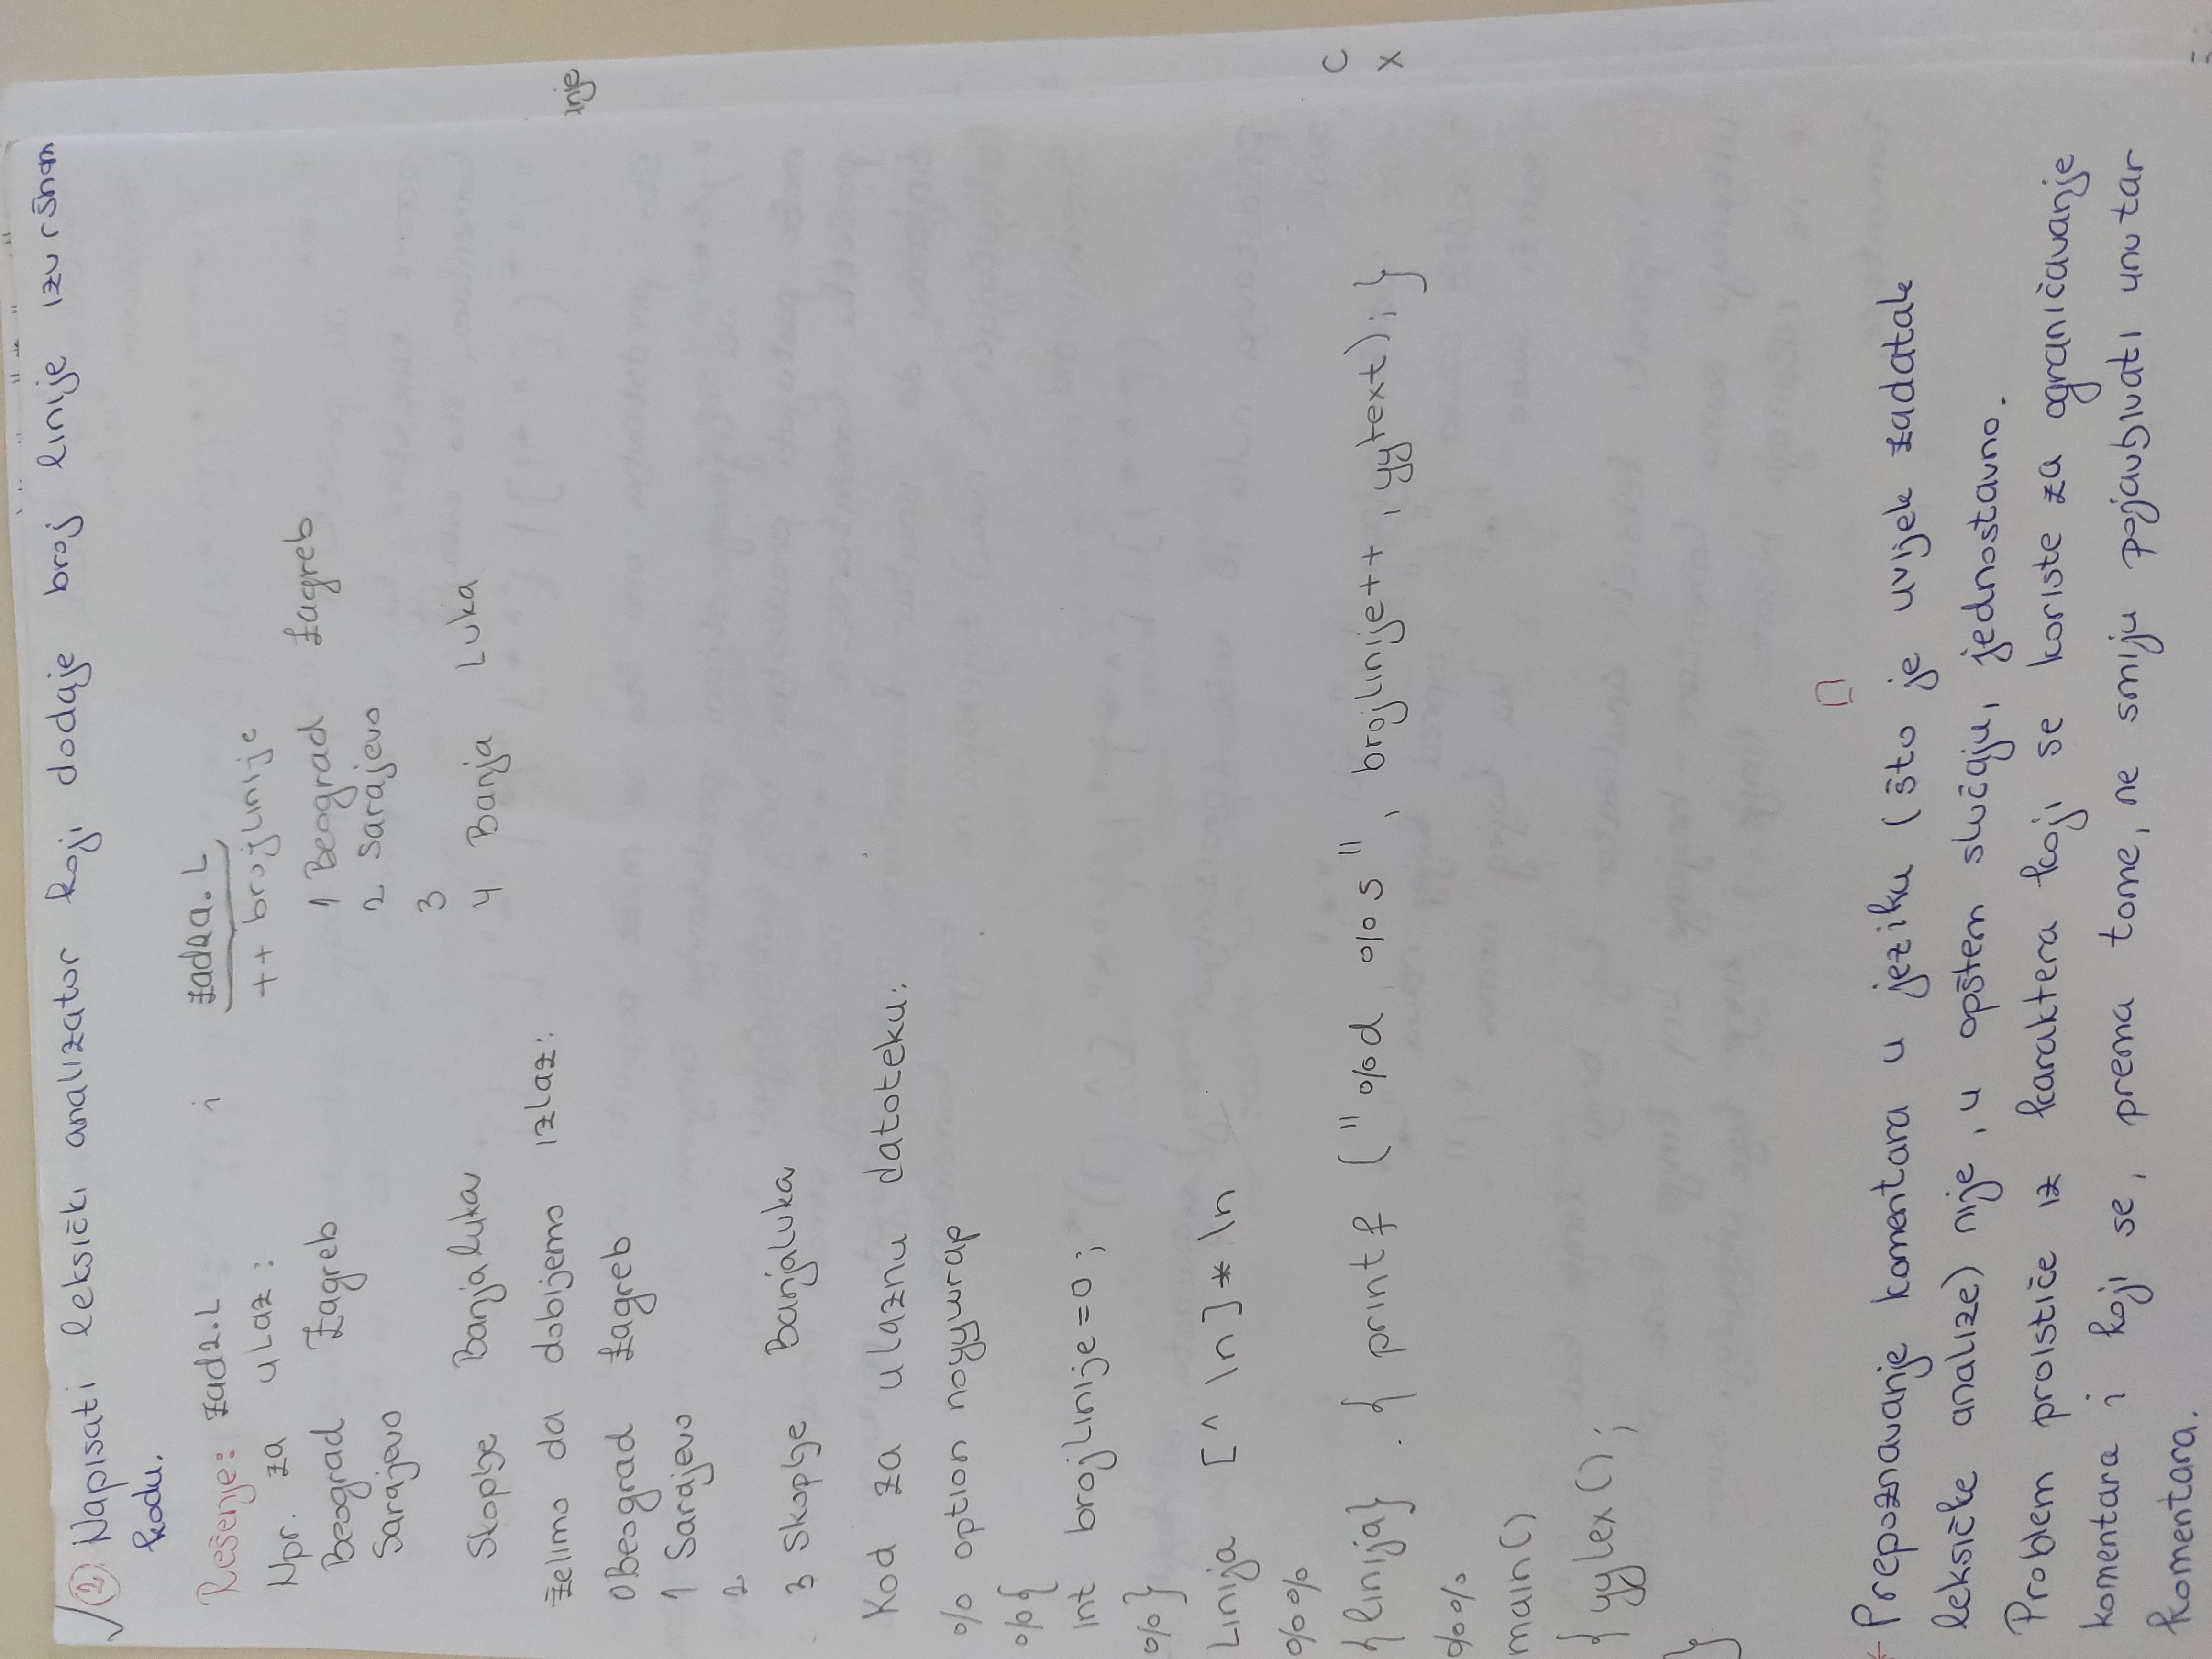 2. Napisati leksički analizator koji dodaje broj linije izvršnom
kodu.
Rešenje: zad2.L i zad2a.L
++ brojlinije
Npr. za ulaz:
Beograd Zagreb
Sarajevo
Skoplje Banjaluka
1 Beograd Zagreb
2 Sarajevo
3
4 Banja Luka
želimo da dobijemo izlaz:
0Beograd Zagreb
1 Sarajevo
2
3 Skoplje Banjaluka
Kod za ulaznu datoteku:
% option noyywrap
%{
int brojlinije=0;
%}
Linija [^ \n]* \n
%%
{linija} . { printf ("%d %s", brojlinije++, yytext); }
%%
main()
{ yylex();
}
Prepoznavanje komentara u jeziku (što je uvijek zadatak
leksičke analize) nije, u opštem slučaju, jednostavno.
Problem proističe iz karaktera koji se koriste za ograničavanje
komentara i koji se, prema tome, ne smiju pojavljivati unutar
komentara.
nje
C
X